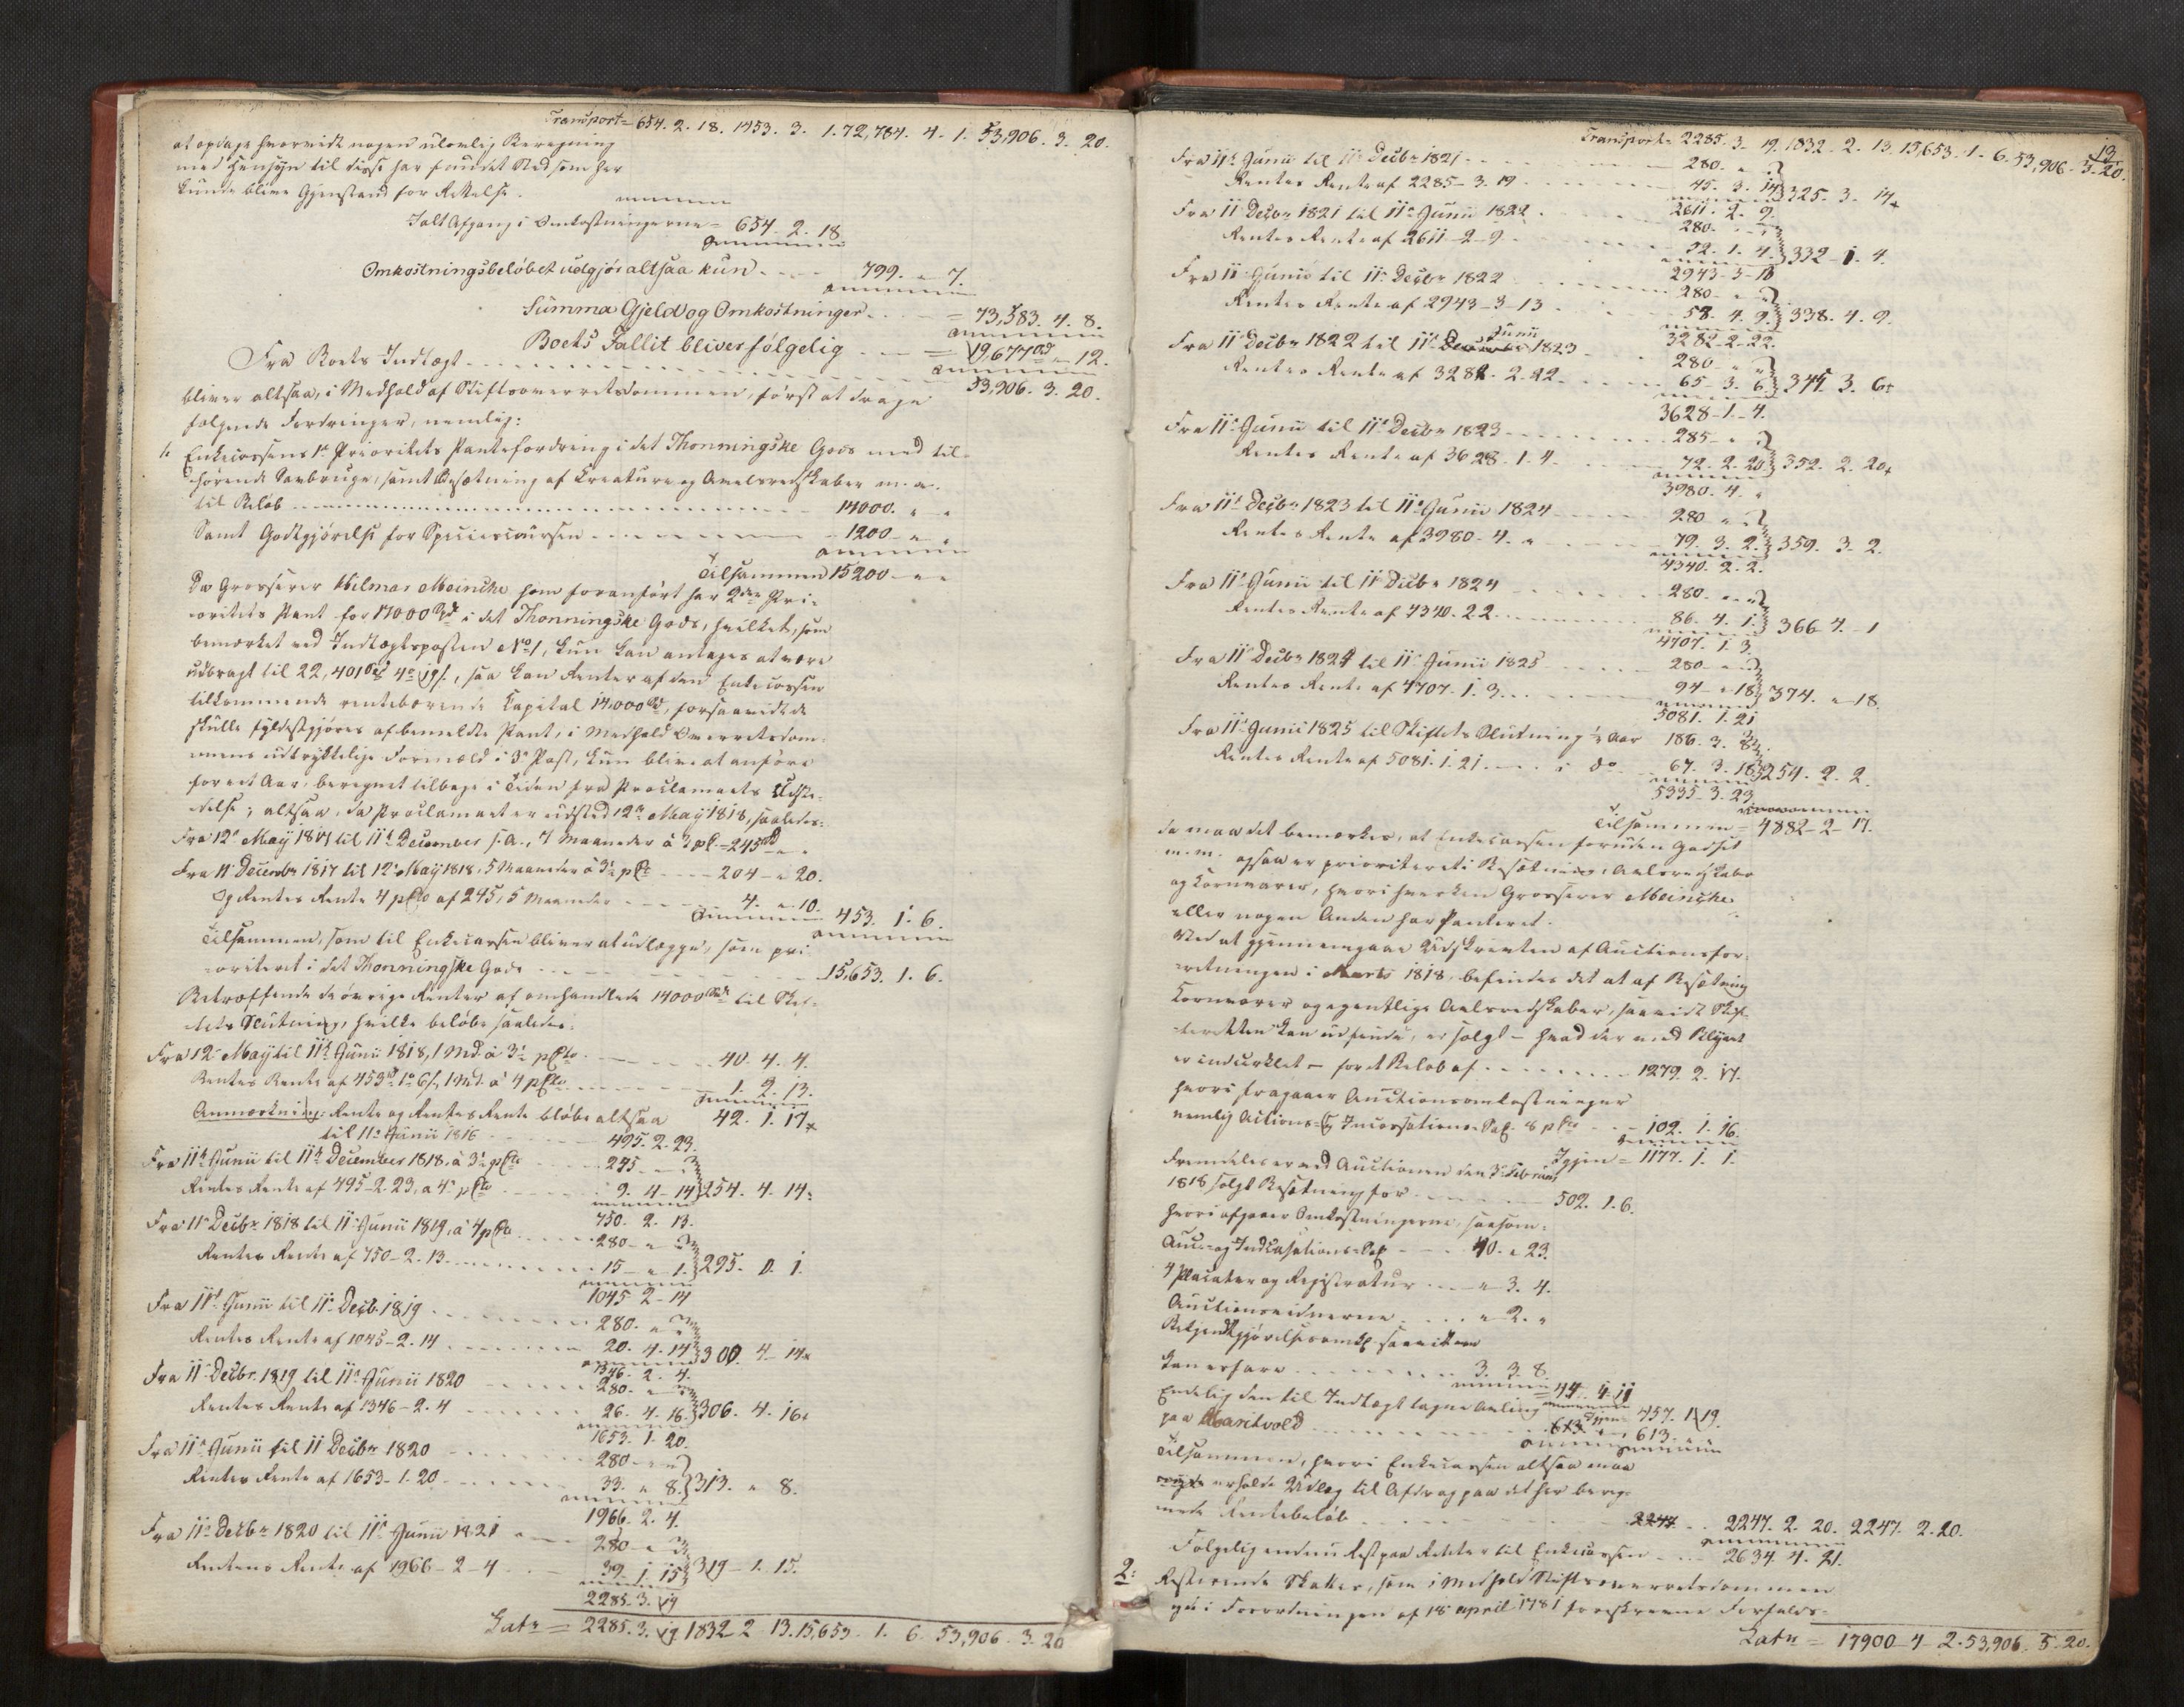 Transport = 654. 2. 18. 1453. 3. 1. 72,784. 4. 1. 53,906. 3. 20.
at opdage hvorvidt nogen ulovlig Beregning
med Hensyn til disse har fundet Sted som her
kunde blive Gjenstand for Rettelse.
Ialt Afgang i Omkostningerne = 654. 2. 18
Omkostningsbeløbet udgjør altsaa kun - - - 799. " 7.
Summa Gjeld og Omkostninger - - = 73,583. 4. 8.
Boets Fallit bliver følgelig - - = 19,677 " 12.
Fra Boets Indtægt - - - 53,906. 3. 20.
bliver altsaa, i Medhold af Stiftsoverretsdommen, først at drage
følgende Fordringer, nemlig:
1. Enkecassens 1ste Prioritets Pantefordring i det Thonningske Gods med til-
hørende Sambruge, samt Besætning af Creature og Avelsredskaber m. v.
til Beløb - - - 14000. " "
Samt Godtgjørelse for Speciescoursen - - - 1200 - " "
Tilsammen 15200 - " "
Da Grosserer Hilmar Meincke som foranført har 2den Pri-
oritets Pant for 17000 Spd i det Thonningske Gods, hvilket, som
bemærket ved Indtægtsposten No 1, kun kan antages at være
udbragt til 22,401 Spd 4 ort 19 s., saa kan Renter af den Enkecassen
tilkommende rentebærende Capital 14,000 Spd, forsaavidt de
skulle fyldestgjøres af bemeldte Pant, i Medhold Overretsdom-
mens udtrykkelige Formæld i 3de Post, kun blive at anføre
for eet Aar, beregnet tilbage i Tiden fra Proclamaets Udste-
delse; altsaa, da Proclamaet er udsted 12te May 1818, saaledes:
Fra 12te May 1817 til 11te December s. A., 7 Maaneder à 3 pC. = 245 " "
Fra 11te Decembr 1817 til 12te May 1818, 5 Maaneder à 3½ pCt - - - 204 - " 20.
Og Rentes Rente 4 pCto af 245, 5 Maaneder - - - 4. " 10. 453. 1. 6.
Tilsammen, som til Enkecassen bliver at udlægge, som pri-
oriteret i det Thonningske Gods - - - 15,653. 1. 6.
Betræffende de øvrige Renter af omhandlede 14000 Spd til Skif-
tets Slutning, hvilke beløbe saaledes:
Fra 12te May til 11te Junii 1818, 1 Md. à 3½ pCto - - - 40. 4. 4.
Rentes Rente af 453 Spd 1 ort 6 s., 1 Md. à 4 pCto - - - 1. 2. 13.
Anmærkning: Rente og Rentes Rente bløbe altsaa 42. 1. 17
til 11te Junii 1816 - - - 495. 2. 23.
Fra 11te Junii til 11te December 1818, à 3½ pCto - - - 245 - " "
Rentes Rente af 495-2-23, à 4 pCto - - - 9. 4 - 14 } 254. 4. 14
750. 2. 13.
Fra 11te Decbr 1818 til 11te Junii 1819, à 4 pCto - - - 280 - " "
Rentes Rente af 750-2. 13. - - - 15 - " 1. } 295. 0. 1.
1045 2 - 14
Fra 11te Junii til 11te Decbr 1819 - - - 280. " "
Rentes Rente af 1045-2. 14 - - - 20. 4. 14 } 300. 4 - 14
1346. 2. 4.
Fra 11te Decbr. 1819 til 11te Junii 1820 - - - 280. " "
Rentes Rente af 1346-2. 4 - - - 26. 4. 16. } 306. 4. 16
1653. 1. 20.
Fra 11te Junii til 11 Decbr 1820 - - - 280 - " "
Rentes Rente af 1653-1-20 - - - 33. " 8. } 313. " 8.
1966. 2. 4.
Fra 11te Decbr 1820 til 11te Junii 1821 - - - 280 - " "
Rentens Rente af 1966-2-4 - - - 39. 1. 15 } 319 - 1. 15.
2285. 3. 19
Latr = 2285. 3. 19 1832 2 13. 15,653. 1. 6. 53,906. 3. 20
13.
Transport = 2285. 3. 19. 1832. 2. 13. 15,653. 1. 6. 53,906. 3. 20.
Fra 11te Junii til 11te Decbr 1821 - - - 280. " "
Rentes Rente af 2285-3. 19 - - - 45. 3. 14 } 325. 3. 14
2611. 2. 9.
Fra 11 Decbr 1821 til 11te Junii 1822 - - - 280. " "
Rentes Rente af 2611-2-9 - - - 52. 1. 4. } 332 - 1. 4.
2943-3-13
Fra 11te Junii til 11te Decbr 1822 - - - 280 - " "
Rentes Rente af 2943-3-13 - - - 58. 4. 9. } 338. 4. 9.
3282-2-22.
Fra 11te Decbr 1822 til 11te Junii 1823 - - - 280 - " "
Rentes Rente af 3282. 2. 22. - - - 65 - 3. 6 } 345. 3. 6
3628-1-4.
Fra 11te Junii til 11te Decbr 1823 - - - 285 - " "
Rentes Rente af 3628. 1. 4. - - - 72. 2. 20 } 352. 2. 20
3980. 4. "
Fra 11te Decbr 1823 til 11te Junii 1824 - - - 280 " "
Rentes Rente af 3980. 4. " - - - 79. 3. 2. } 359. 3. 2.
4340. 2. 2.
Fra 11te Junii til 11te Decbr 1824 - - - 280. " "
Rentes Rente af 4340. 2 2. - - - 86. 4. 1. } 366 4. - 1
4707. 1. 3
Fra 11te Decbr 1824 til 11te Junii 1825 - - - 280 - " "
Rentes Rente af 4707. 1. 3. - - - 94 - " 18 } 374. " 18.
5081. 1. 21
Fra 11te Junii 1825 til Skiftets Slutning ⅓ Aar 186. 3. 8
Rentes Rente af 5081. 1. 21. - - - i do - 67. 3. 18 } 254. 2. 2
5335-3. 23
Tilsammen = 4882-2-17.
da maa det bemærkes, at Enkecassen foruden Godset
m. m. ogsaa er prioriteret i Besætning, Avlsredskabe
og Kornvarer, hvori hverken Grosserer Meincke
eller nogen Anden har Panteret.
Ved at gjennemgaae Udskrivten af Auctionsfor-
retningen i Marts 1818, befindes det at af Besætning
Kornvarer og egentlige Avlsredskaber, saavidt Skif-
teretten kan udfinde, er solgt - hvad der med Blyant
er indcirklet - for et Beløb af - - - 1279. 2. 17.
hvori fragaaer Auctionsomkostninger
nemlig Auctions- og Incassations-Sal. 8 pCto - - - 102. 1. 16.
Igjen = 1177. 1. 1.
Fremdeles er ved Auctionen den 3de Februar
1818 solgt Besætning for - - - 502. 1. 6.
hvori afgaaer Omkostningerne, saasom:
Auc- og Indcasations-Sal. - - - 40. " 23.
4 Placater og Registratur - - - " 3. 4.
Auctionsvidnerne - - - " 2. "
Bekjendtgjørelsesomk. saavidt man
kan erfare - - - 3. 3. 8.
= 44. 4. 11
Igjen 457. 1. 19.
Endelig den til Indtægt tagne Avling
paa Maritvold - - - 613. " "
Tilsammen, hvori Enkecassen altsaa maa
erholde Udlæg til Afdrag paa det her bereg-
nede Rentebeløb - - - 2247 - - 2247. 2. 20. 2247. 2. 20.
Følgelig endnu Rest paa Renter til Enkecassen - - - 2634. 4. 21.
2: Resterende Skatter, som i Medhold Stiftsoverretsdommen
og i Forordningen af 18 april 1781 foreskrevne Forfalds-
Latr = 17900 - 4 - 2. 53,906. 3. 20.